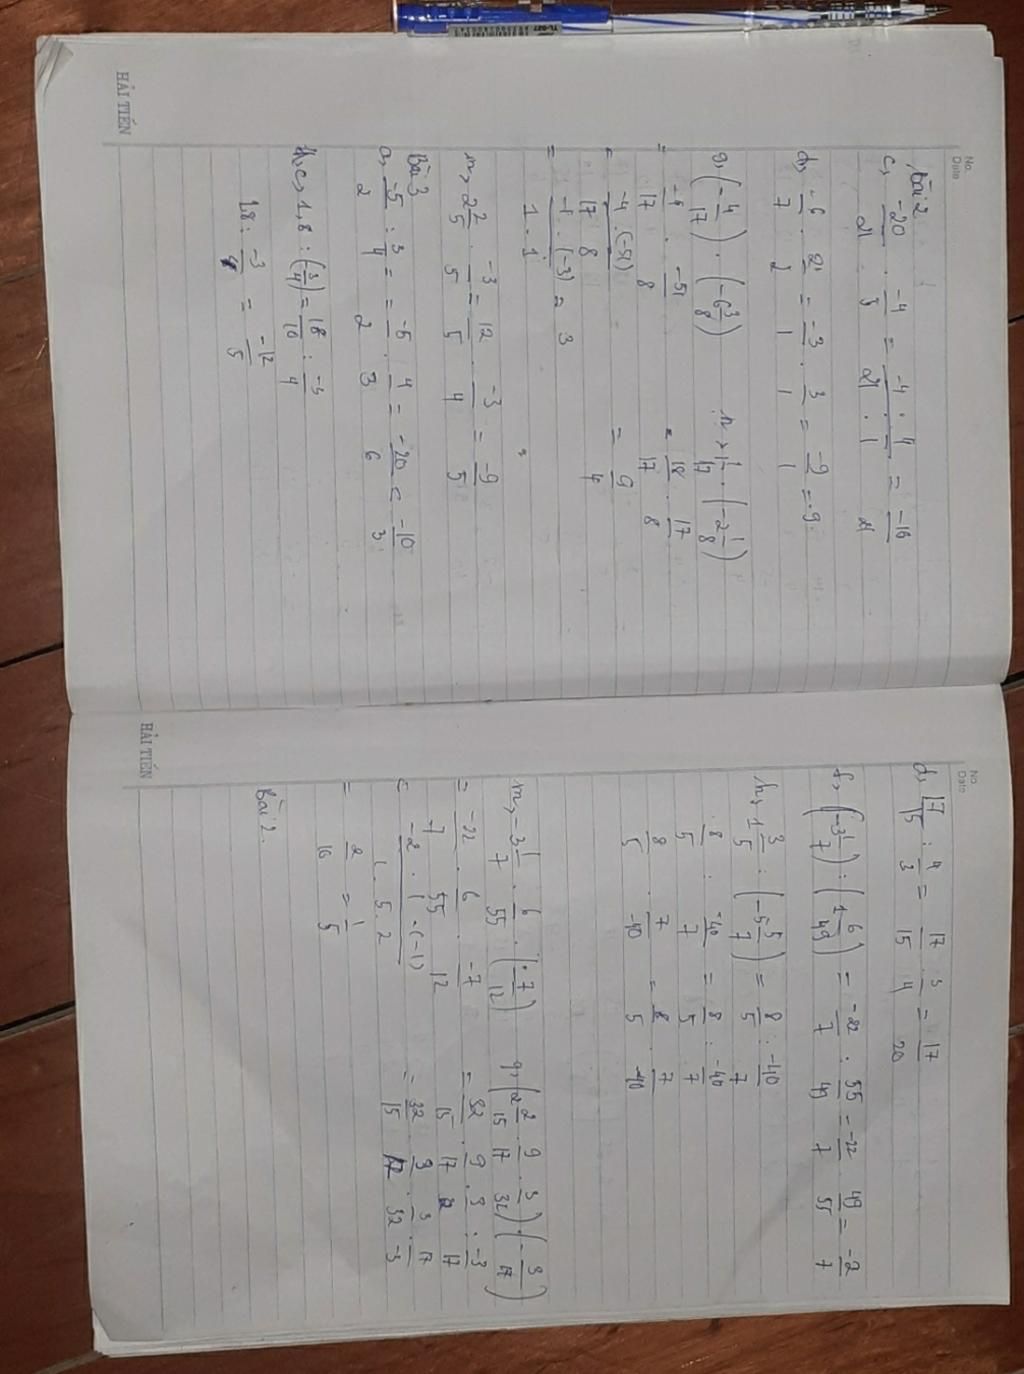 No.
Date
Bài 2
c, -20/21 . -4/5 = -4 . 4 / 21 . 1 = -16/21
d, -6/7 . 21/2 = -3/1 . 3/1 = -9/1 = -9
g, (-4/17) . (-6 3/8)
= -4/17 . -51/8
= -4 . (-51) / 17 . 8
= -1 . (-3) / 1 . 1 = 3
n, 1 1/17 . (-2 1/8)
= 18/17 . 17/8
= 9/4
m, 2 2/5 . -3/5 = 12/5 . -3/4 = -9/5
Bài 3
a, -5/2 : 3/4 = -5/2 . 4/3 = -20/6 = -10/3
c, 1,8 : (3/4) = 18/10 : -3/4
18 : -3/4 = -12/5
HẢI TIẾN
No.
Date
d, 17/15 : 4/3 = 17/15 . 3/4 = 17/20
f, (-3 1/7) : (1 6/49) = -22/7 : 55/49 = -22/7 . 49/55 = -2/7
h, 1 3/5 : (-5 5/7) = 8/5 : -40/7
8/5 : -40/7 = 8/5 : -40/7
8/5 . 7/-40 = 8/5 . 7/-40
m, -3 1/7 . 6/55 . (-7/12)
= -22/7 . 6/55 . -7/12
= -2 . 1 . (-1) / 1 . 5 . 2
= 2/10 = 1/5
q, (2 2/15 . 9/17 . 3/32) : (-3/17)
= 32/15 . 9/17 . 3/32 : -3/17
= 32/15 . 9/17 . 3/32 . 17/-3
Bài 2.
HẢI TIẾN